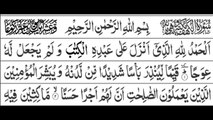 بِسْمِ اللهِ الرَّحْمٰنِ الرَّحِيْمِ
اَلْحَمْدُ لِلّٰهِ الَّذِيْٓ اَنْزَلَ عَلٰى عَبْدِهِ الْكِتٰبَ وَلَمْ يَجْعَلْ لَّهٗ
عِوَجًا قَيِّمًا لِّيُنْذِرَ بَاْسًا شَدِيْدًا مِّنْ لَّدُنْهُ وَيُبَشِّرَ الْمُؤْمِنِيْنَ
الَّذِيْنَ يَعْمَلُوْنَ الصّٰلِحٰتِ اَنَّ لَهُمْ اَجْرًا حَسَنًا مَّاكِثِيْنَ فِيْهِ